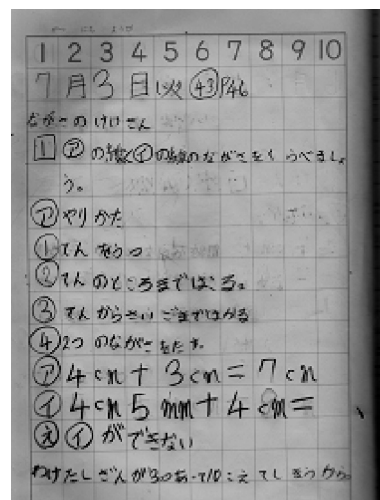 1 2 3 4 5 6 7 8 9 10
7月3日(火) ㊸P46
ながさのけいさん
1 ㋐の線と㋑の線のながさをくらべましょ
う。
㋐やりかた
①てんをうつ
②てんのところまではかる。
③てんからさいごまではかる
④2つのながさをたす。
㋐4cm+3cm=7cm
㋑4cm5mm+4cm=
㋓㋑ができない
わけたしざんが3つあって10こえてしまうから